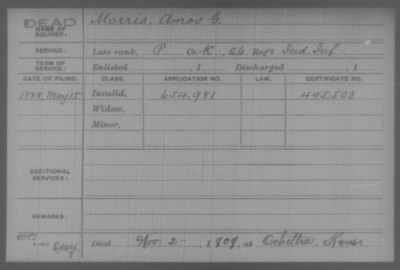 DEAD
NAME OF SOLDIER: Morris, Amos G.
SERVICE: Late rank, P Co. K, 26 Reg't Ind. Inf.
TERM OF SERVICE: Enlisted , 1 Discharged , 1
DATE OF FILING. CLASS. APPLICATION NO. LAW. CERTIFICATE NO.
1888, May 15 Invalid, 654,981 445,503
Widow,
Minor,
ADDITIONAL SERVICES:
REMARKS:
Died Nov. 2 , 1909, at Kans